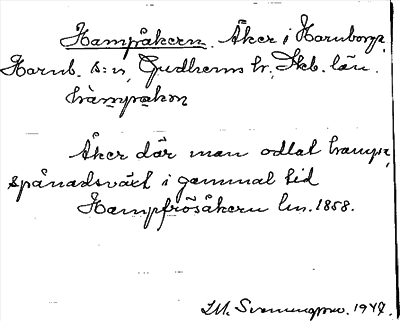 Hampåkern. Åker i Hornborga,
Hornb. s:n, Gudhems hr, Skb. län.
hàmpakɷn
Åker där man odlat hampa,
spånadsväxt i gammal tid
Hampfrösåkern lm. 1858.
I.M. Svenungsson. 1947.